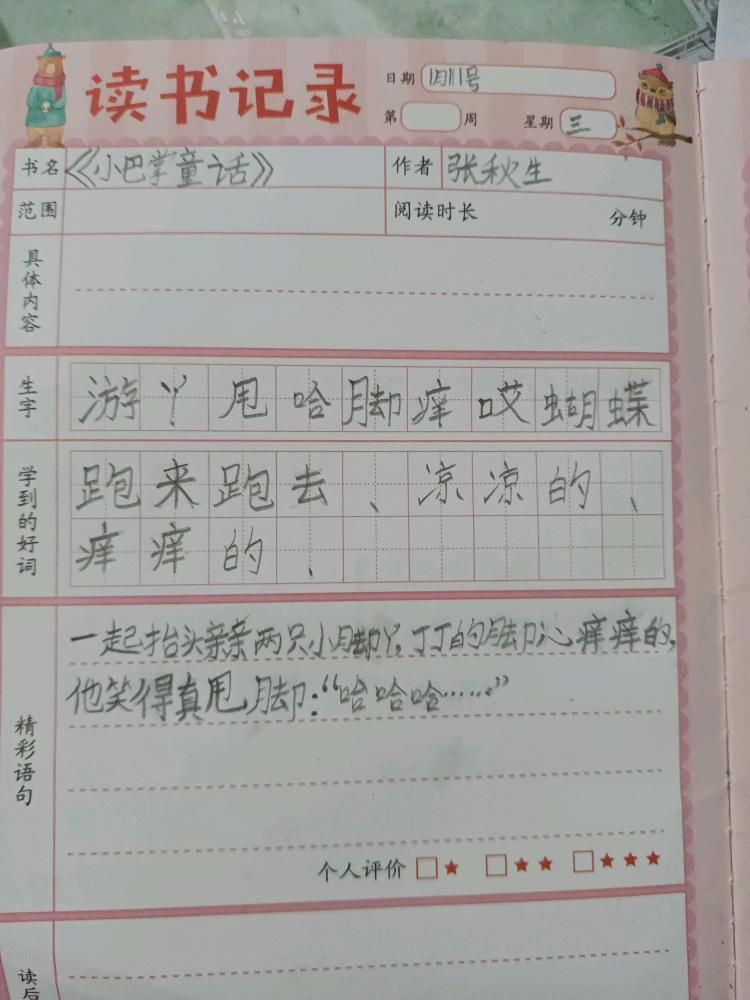 读书记录
日期 1月11号
第 周 星期 三
书名 《小巴掌童话》 作者 张秋生
范围 阅读时长 分钟
具体内容
生字 游丫甩哈脚痒哎蝴蝶
学到的好词 跑来跑去、凉凉的、
痒痒的、
精彩语句
一起抬头亲亲两只小脚丫,丁丁的脚心痒痒的,
他笑得真甩脚:“哈哈哈……”
个人评价 □★ □★★ □★★★
读后